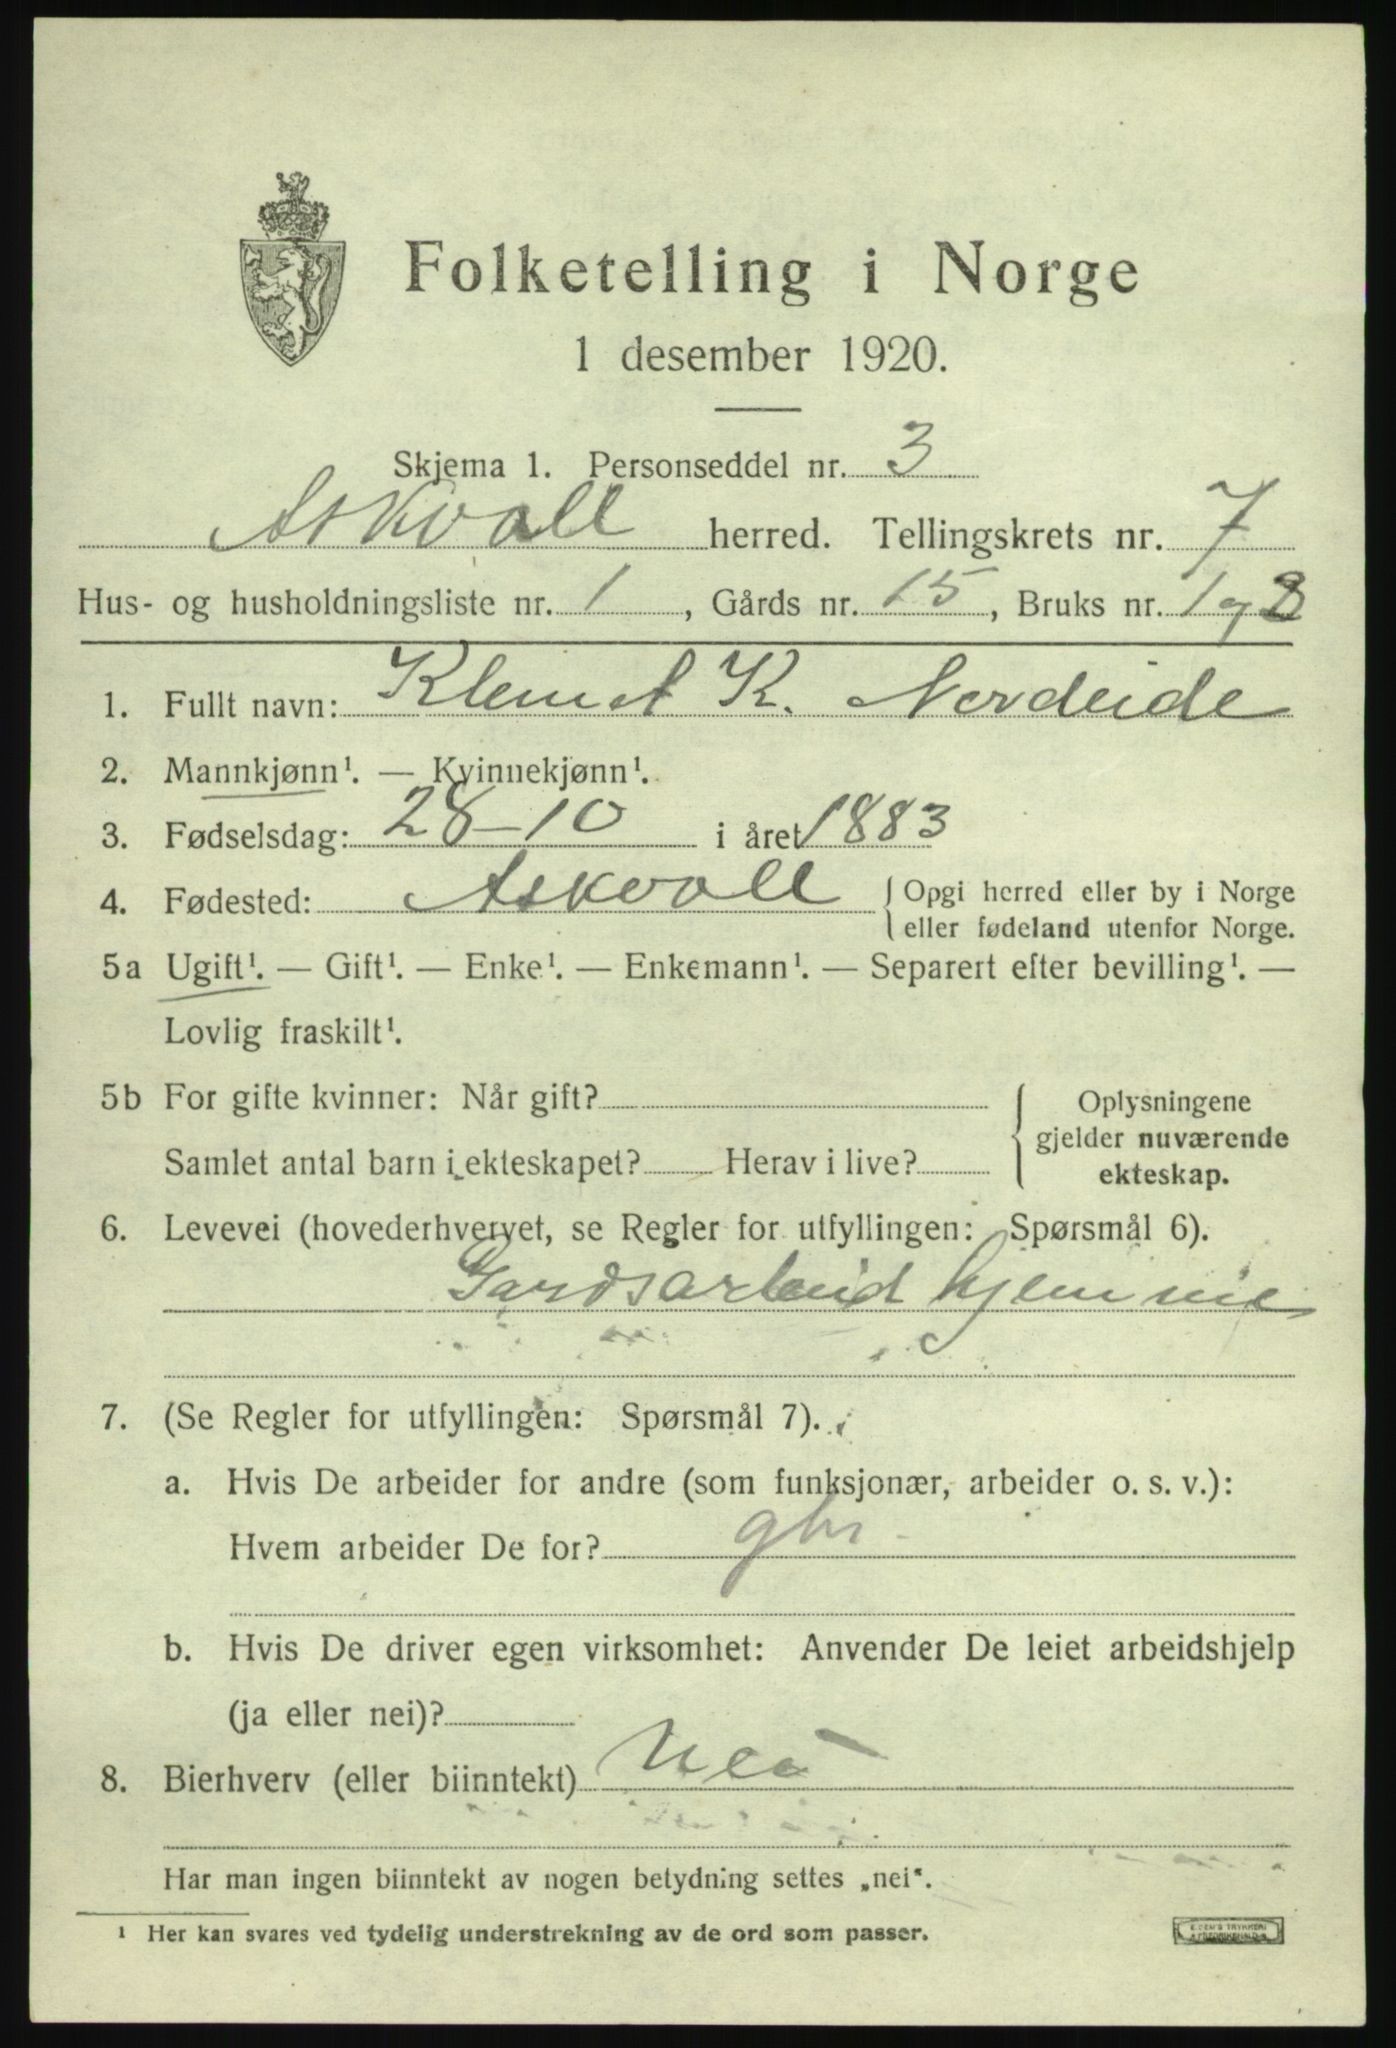 Folketelling i Norge
1 desember 1920.
Skjema 1. Personseddel nr. 3
Askvoll herred. Tellingskrets nr. 7
Hus- og husholdningsliste nr. 1, Gårds nr. 15, Bruks nr. 1 og 2
1. Fullt navn: Klemet K. Nordeide
2. Mannkjønn¹. — Kvinnekjønn¹.
3. Fødselsdag: 28-10 i året 1883
4. Fødested: Askvoll { Opgi herred eller by i Norge
eller fødeland utenfor Norge.
5a Ugift¹. — Gift¹. — Enke¹. — Enkemann¹. — Separert efter bevilling¹. —
Lovlig fraskilt¹.
5b For gifte kvinner: Når gift?
Samlet antal barn i ekteskapet? Herav i live?
Oplysningene
gjelder nuværende
ekteskap.
6. Levevei (hovederhvervet, se Regler for utfyllingen: Spørsmål 6).
Gardsarbeid hjemme
7. (Se Regler for utfyllingen: Spørsmål 7).
a. Hvis De arbeider for andre (som funksjonær, arbeider o. s. v.):
Hvem arbeider De for? gbr
b. Hvis De driver egen virksomhet: Anvender De leiet arbeidshjelp
(ja eller nei)?
8. Bierhverv (eller biinntekt) Nei
Har man ingen biinntekt av nogen betydning settes „nei“.
¹ Her kan svares ved tydelig understrekning av de ord som passer.